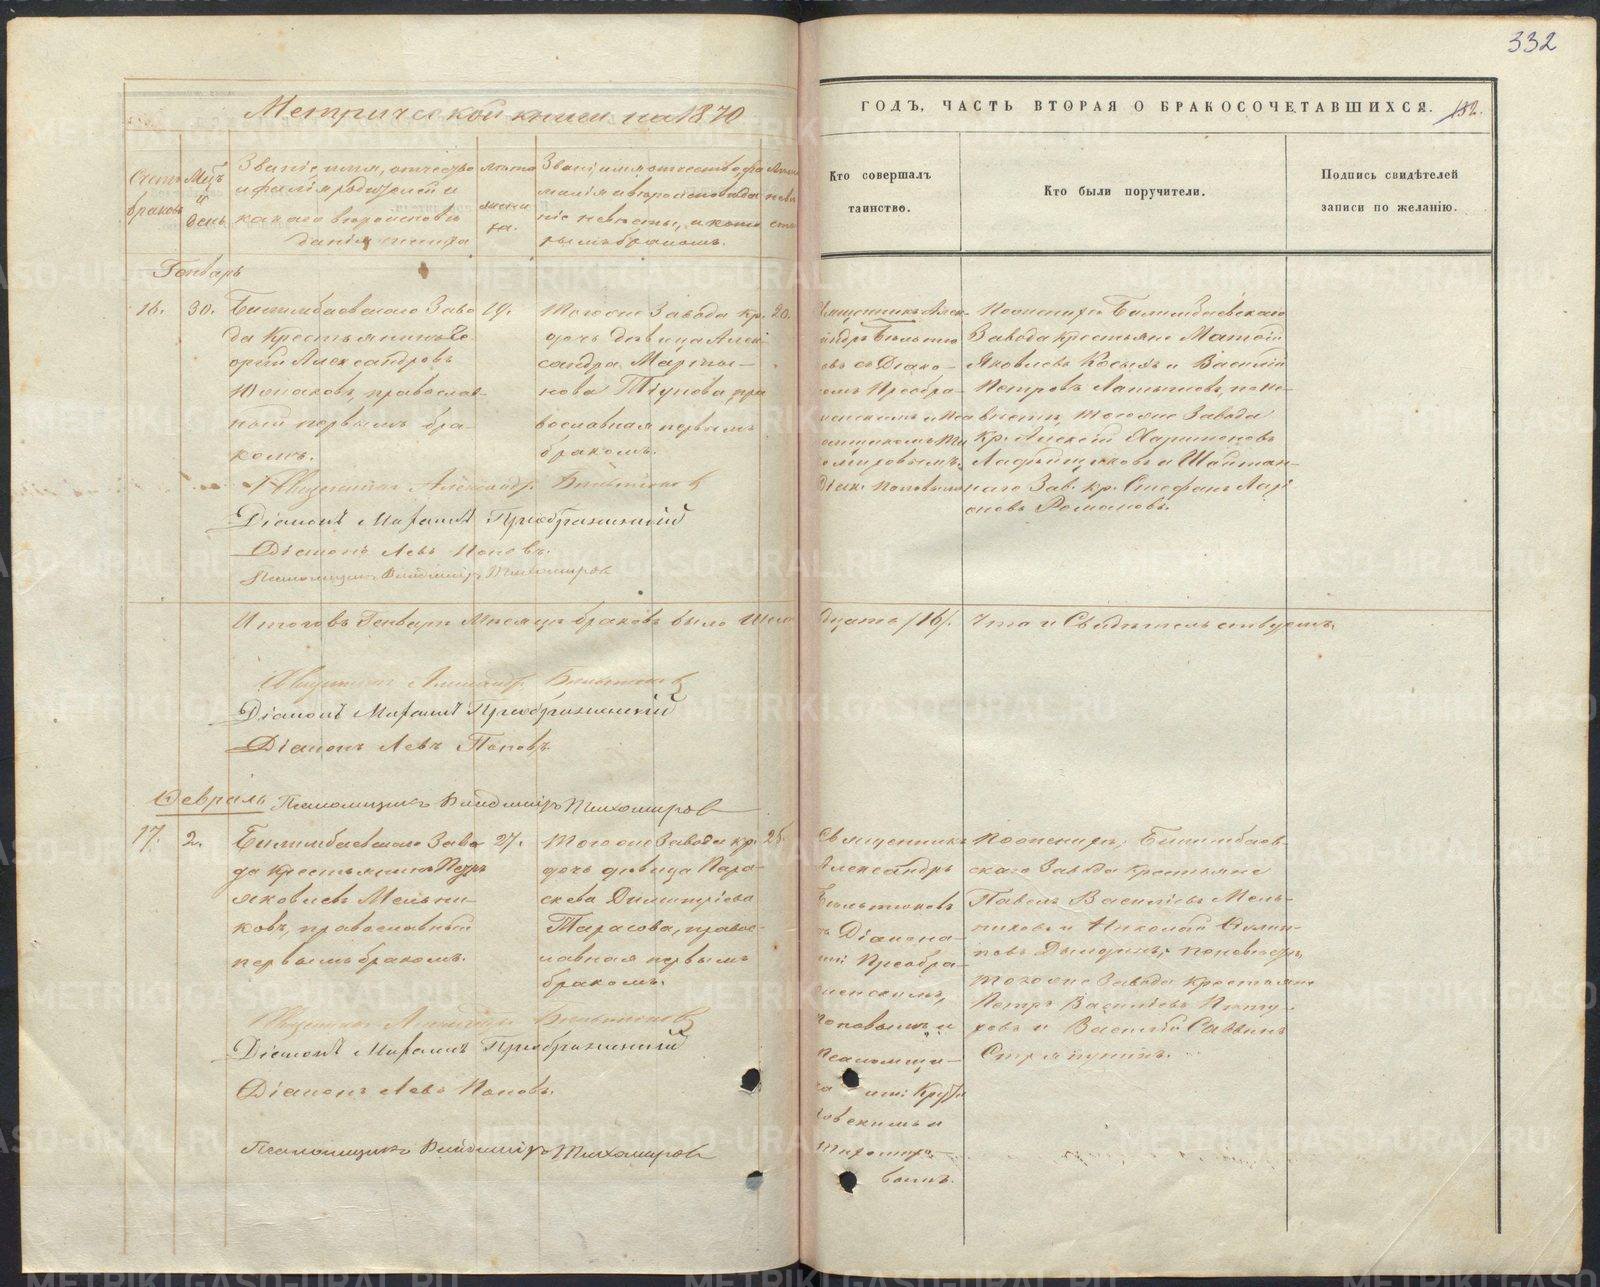 332
Метрической книги на 1870
ГОДЪ, ЧАСТЬ ВТОРАЯ О БРАКОСОЧЕТАВШИХСЯ. 132.
Счетъ браковъ
Мѣц. и день
Званіе, имя, отчество
и фамилія родителей и
какаго вѣроисповѣ
данія жениха
Званіе имя отчество, фа
милія и вѣроисповѣда
ніе невѣсты, и кото
рымъ бракомъ.
Лѣта невѣсты
Кто совершалъ
таинство.
Кто были поручители.
Подпись свидѣтелей
записи по желанію.
Генварь
16.
30.
Билимбаевскаго Заво
да крестьянинъ Ге
оргій Александровъ
православ-
ный первымъ бра-
комъ.
19.
Тогоже Завода кр.
дочь дѣвица Алек
сандра Марты-
нова Тіунова, пра
вославная первымъ
бракомъ.
20.
Священникъ Алек-
сандръ
съ Діако-
номъ Преобра-
женскимъ и
Діак. Поповымъ
Поженихѣ Билимбаевскаго
Завода крестьяне Матѳей
Яковлевъ Косыхъ и Василій
Петровъ Латышовъ, поне-
вѣстѣ, тогоже Завода
кр. Алексѣй Харитоновъ
и Шайтан-
скаго Зав. кр. Стефанъ Лари
оновъ Романовъ.
Священникъ Александръ
Діаконъ Михаилъ Преображенскій
Діаконъ Левъ Поповъ.
Псаломщикъ Владиміръ Тихомировъ
Итого въ Генварѣ Мѣсяцѣ браковъ было Шест
надцать /16/. Что и Свидѣтельствуемъ.
Священникъ Александръ
Діаконъ Михаилъ Преображенскій
Діаконъ Левъ Поповъ.
Февраль
Псаломщикъ Владиміръ Тихомировъ
17.
2.
Билимбаевскаго Заво
да крестьянинъ Петръ
Яковлевъ Мельни-
ковъ, православный
первымъ бракомъ.
27.
Тогоже Завода кр.
дочь дѣвица Пара-
скева Димитріева
Тарасова, правос-
лавная первымъ
бракомъ.
25.
Священникъ
Александръ
съ Діакона-
ми: Преобра-
женскимъ,
Поповымъ и
Псаломщи-
ка ми: Круг
ловскимъ и
Тихомиро-
вымъ.
Поженихѣ, Билимбаев-
скаго Завода крестьяне
Павелъ Василіевъ Мель-
никовъ и Николай
поневѣстѣ,
тогоже Завода крестьяне
Петръ Василіевъ
ровъ и Василій Саввинъ
Стряпунинъ.
Священникъ Александръ
Діаконъ Михаилъ Преображенскій
Діаконъ Левъ Поповъ.
Псаломщикъ Владиміръ Тихомировъ
METRIKI.GASO-URAL.RU